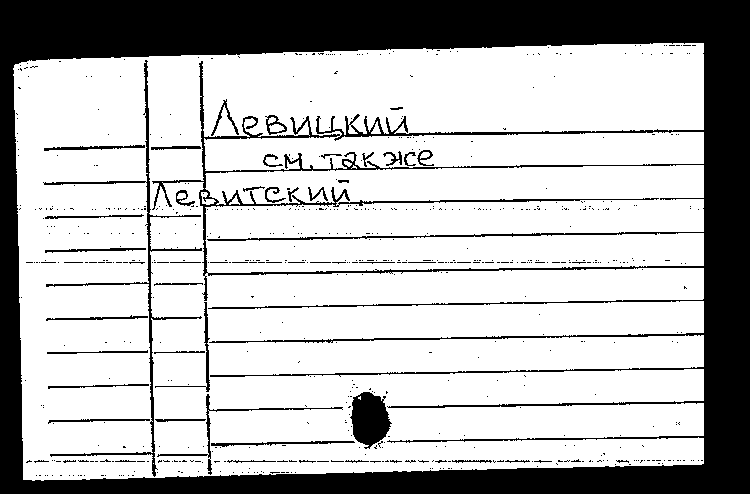 Левицкий
см. также
Левитский.